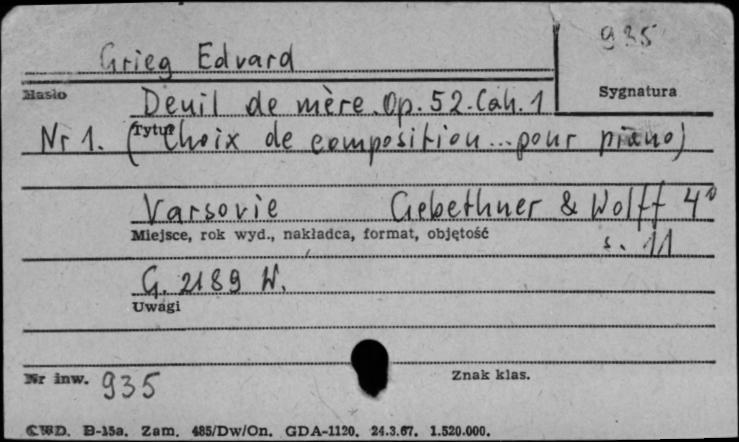 Grieg Edvard
935
Hasło
Sygnatura
Deuil de mère. Op. 52. Cah. 1
Tytuł
Nr 1. (Choix de composition... pour piano)
Varsovie Gebethner & Wolff 4°
Miejsce, rok wyd., nakładca, format, objętość
s. 11
G. 2189 W.
Uwagi
Nr inw. 935
Znak klas.
CWD. B-15a. Zam. 485/Dw/On. GDA-1120. 24.3.67. 1.520.000.